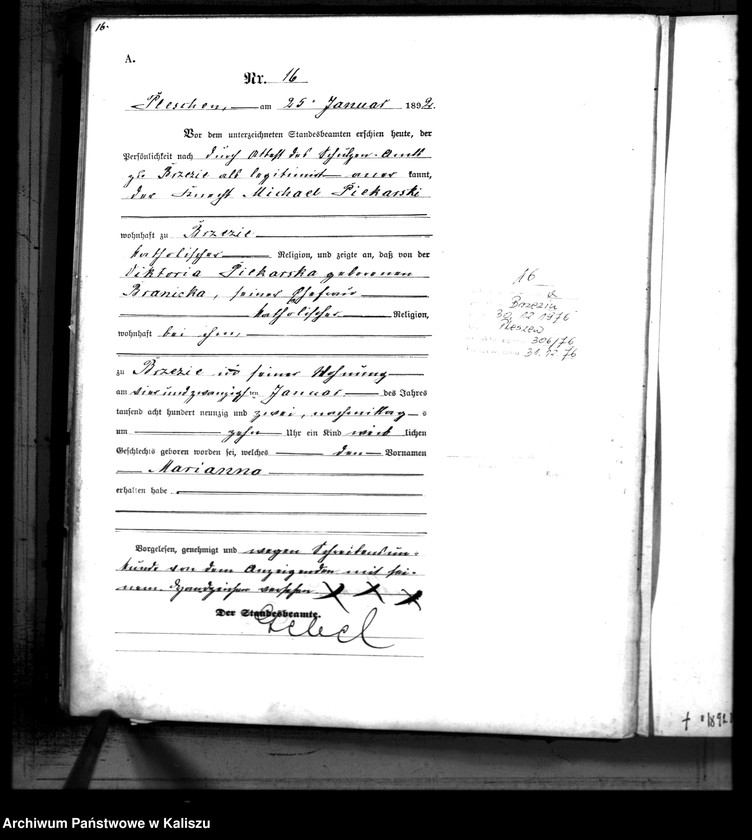 16.
A.
Nr. 16
Pleschen, am 25. Januar 1892.
Vor dem unterzeichneten Standesbeamten erschien heute, der
Persönlichkeit nach durch Attest des Schulzen-Amts
zu Brzezie als legitimirt aner kannt,
der Knecht Michael Piekarski
wohnhaft zu Brzezie
katholischer Religion, und zeigte an, daß von der
Viktoria Piekarska geborenen
Branicka, seiner Ehefrau
katholischer Religion,
wohnhaft bei ihm,
zu Brzezie in seiner Wohnung
am vierundzwanzigsten Januar des Jahres
tausend acht hundert neunzig und zwei, nachmittags
um zehn Uhr ein Kind weiblichen
Geschlechts geboren worden sei, welches den Vornamen
Marianna
erhalten habe.
Vorgelesen, genehmigt und wegen Schreibensun-
kunde von dem Anzeigenden mit sei-
nem Handzeichen versehen. X X X
Der Standesbeamte.
16
Brzeziu
30.12.1976
Pleszew
306/76
31.12.76
Archiwum Państwowe w Kaliszu